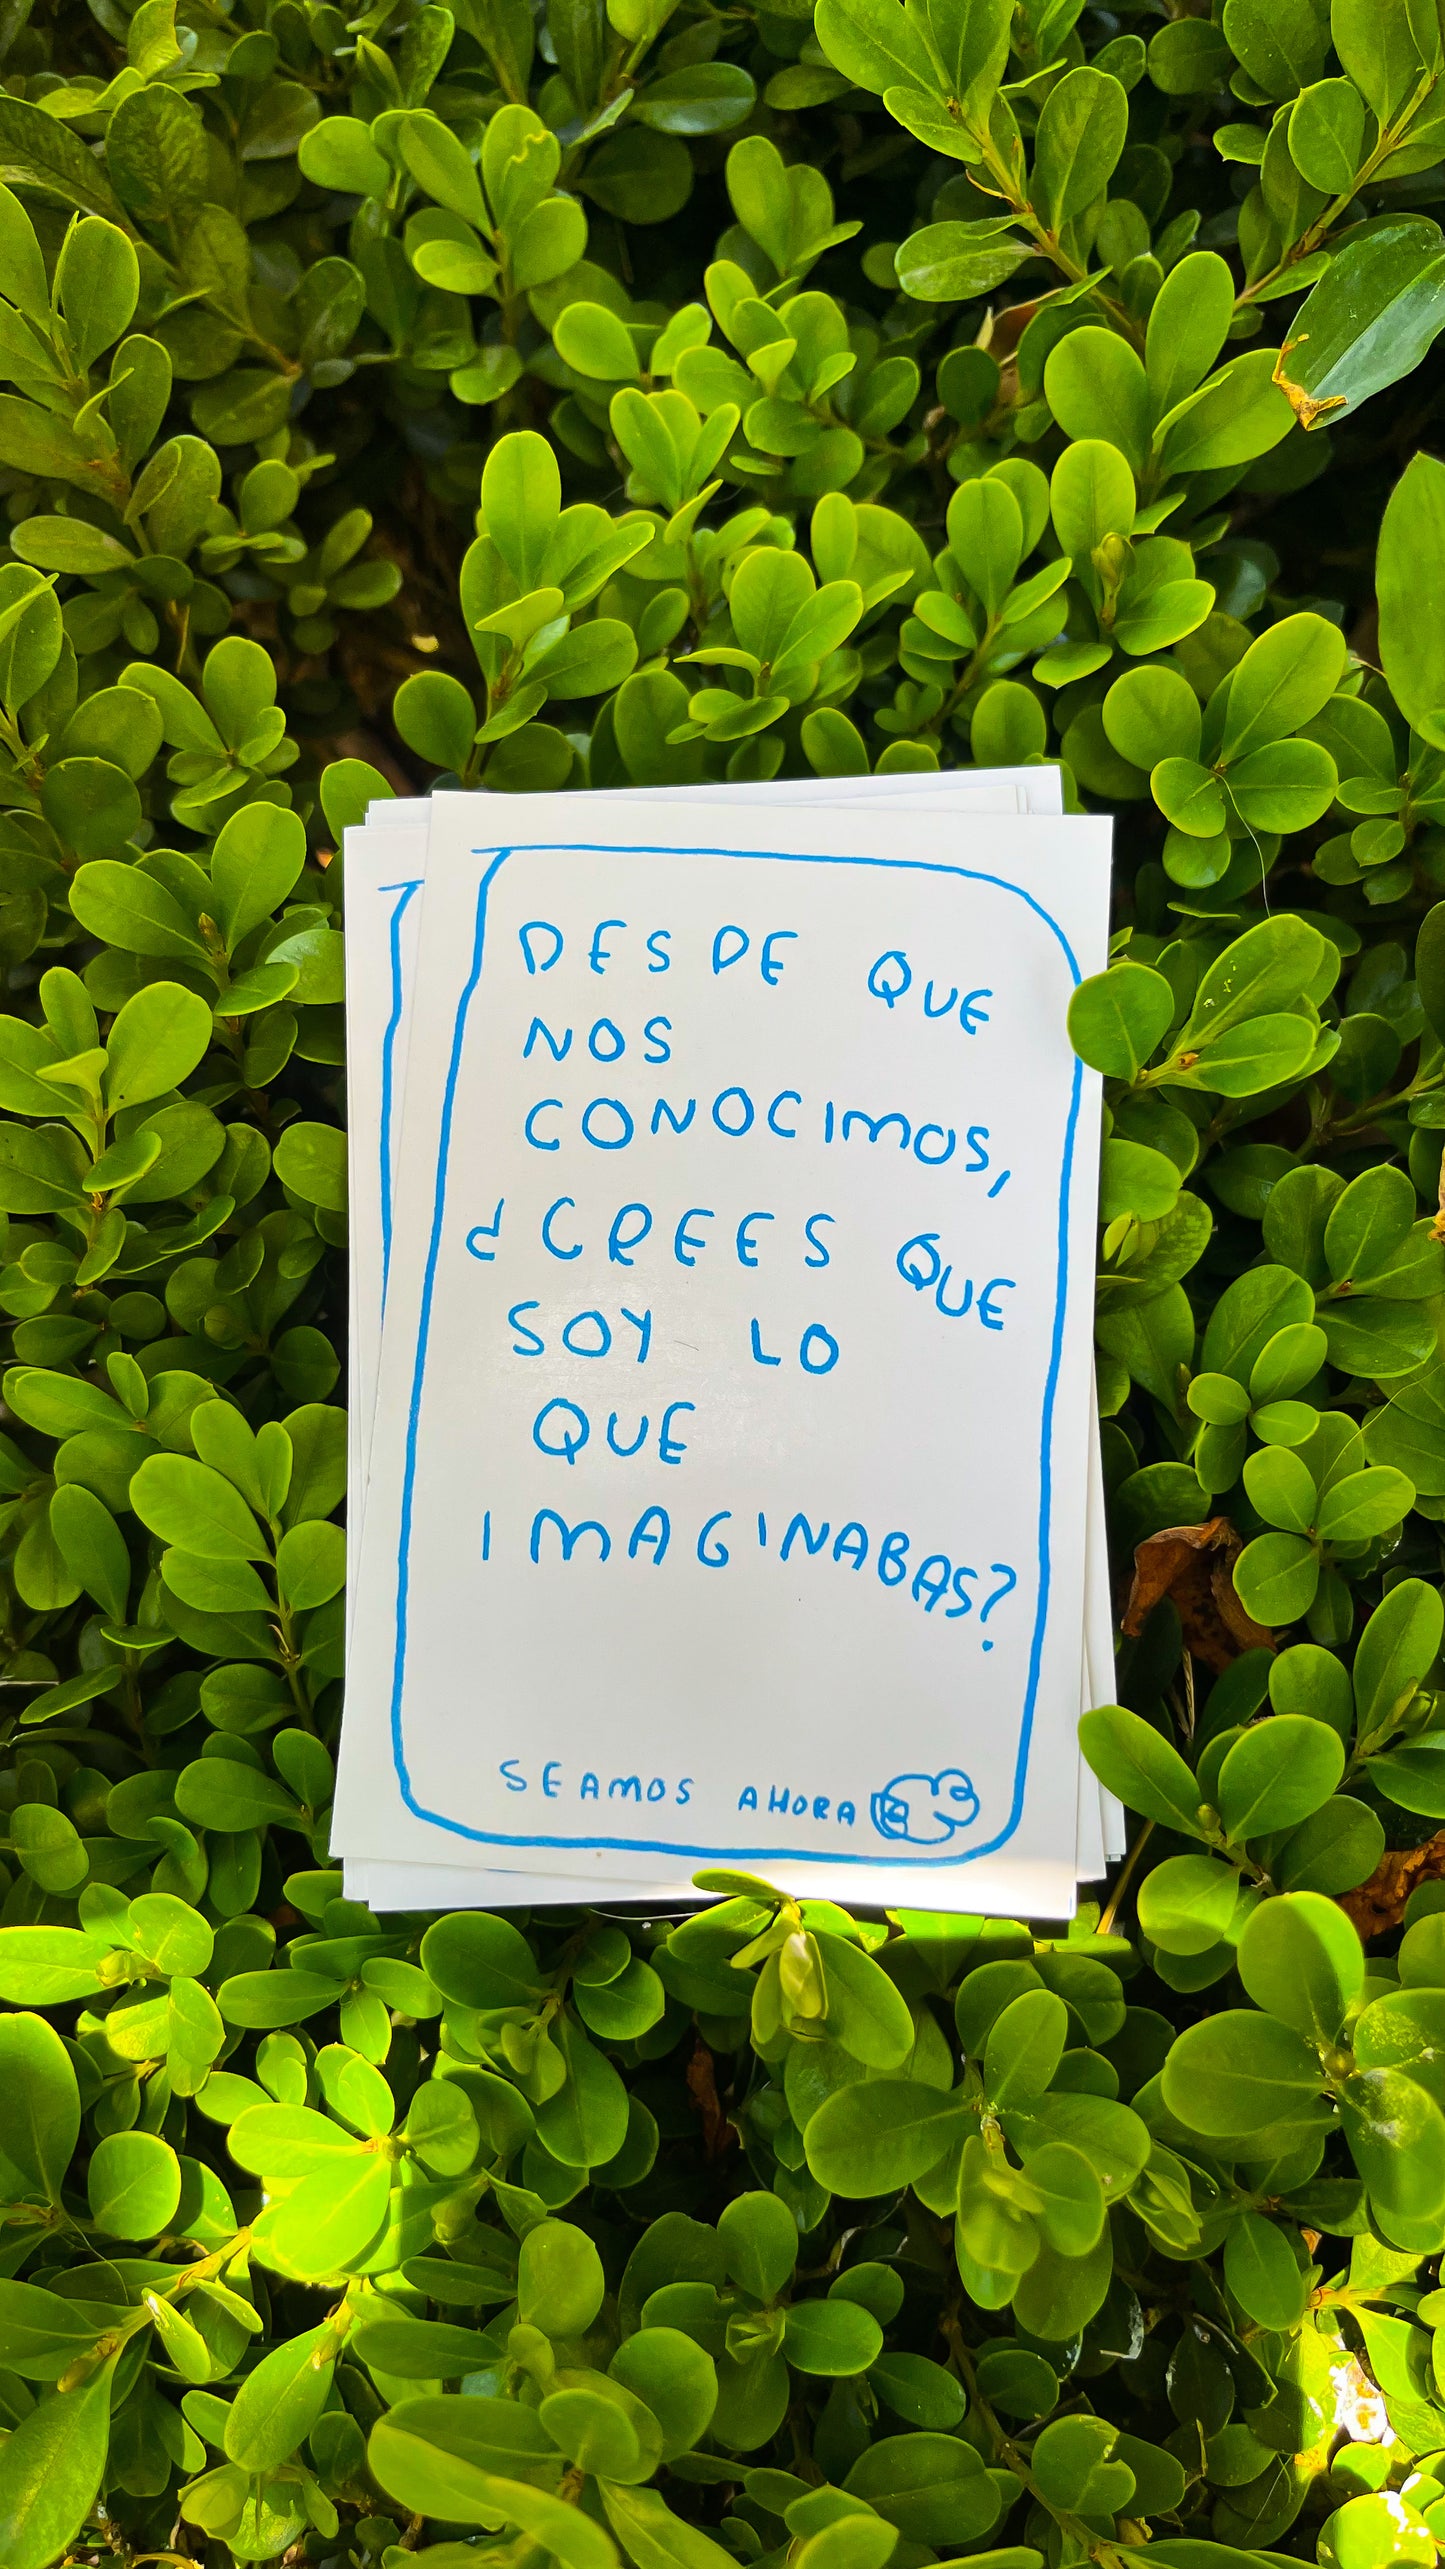 DESDE QUE
NOS
CONOCIMOS,
¿CREES QUE
SOY LO
QUE
IMAGINABAS?
SEAMOS AHORA